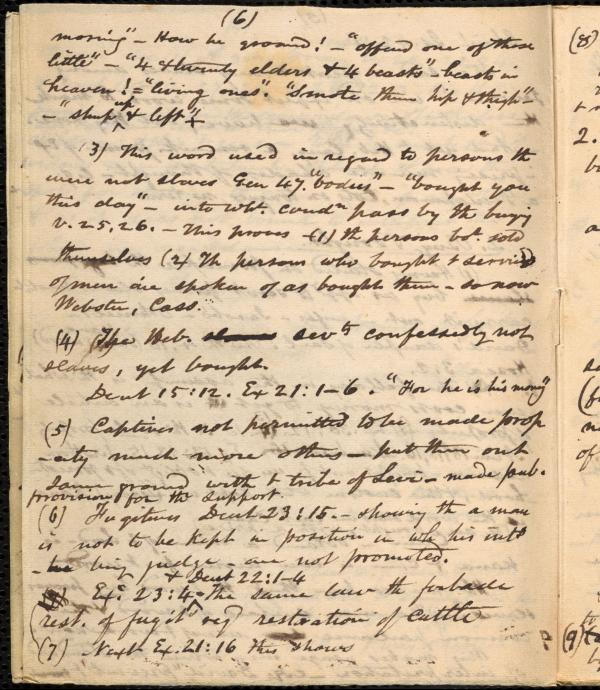 (6)
moving" - How he ground! - "offend one of those
little" - "4 & twenty elders & 4 beasts" - beasts in
heaven! = "living ones". "Smote them hip & thigh" -
- "shut up & left" +
(3) This word used in regard to persons th
were not slaves Gen 47. "bodies" - "bought you
this day" - into wh. condn pass by the buyig
v. 25, 26. - This proves - (1) th persons bot. sold
themselves (2) Th persons who bought & servie
of men are spoken of as bought them - so now
Webster, Cass.
(4) The Heb. slaves sevts confessedly not
slaves, yet bought.
Deut 15:12. Ex 21:1-6. "For he is his mony"
(5) Captives not permitted to be made prop
-erty much more others - put them on t
same ground with t tribe of Levi - made pub.
provision for the support.
(6) Fugitives Deut 23:15. - showing tha man
is not to be kept in position in wh his intt
- he being judge - are not promoted.
& Deut 22:1-4
Ex. 23:4 - The same law th forbade
rest. of fugits reqd restoration of cattle
(7) Next Ex. 21:16 This shows
(8)
2.
(9)